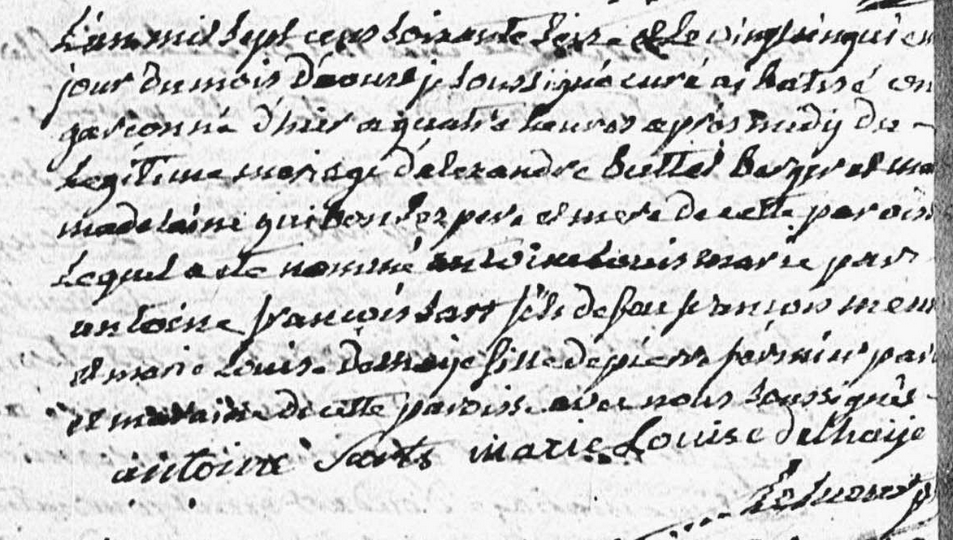 L'an mil sept cens soixante seize et le vingt cinquiem
jour du mois d'aoust je soussigné curé ai batisé un
garçon né d'hier a quatre heures apres midy du
Legitime mariage d'alexandre buttet Berger et ma
madelaine guibon ses pere et mere de cette paroiss
Lequel a ete nommé antoine Louis marie par
antoine françois fils de feu françois
et marie Louise Delhaije fille de pierre par
et maraine de cette paroisse avec nous soussignés
antoine marie Louise delhaije